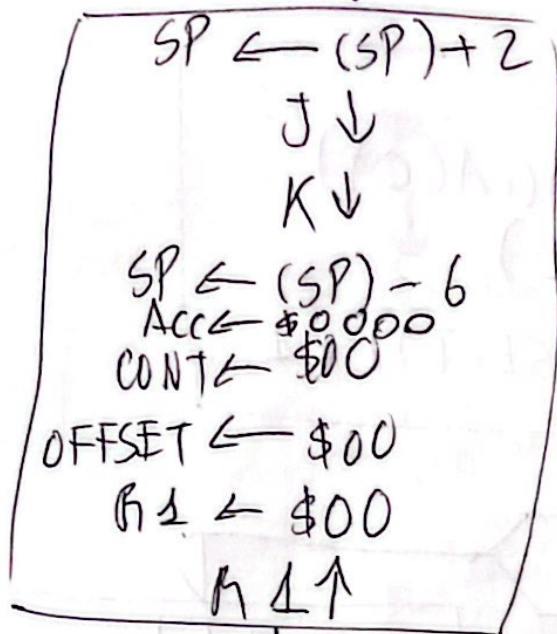 SP ← (SP) + 2
J ↓
K ↓
SP ← (SP) - 6
ACC ← $0000
CONT ← $00
OFFSET ← $00
R1 ← $00
R1 ↑